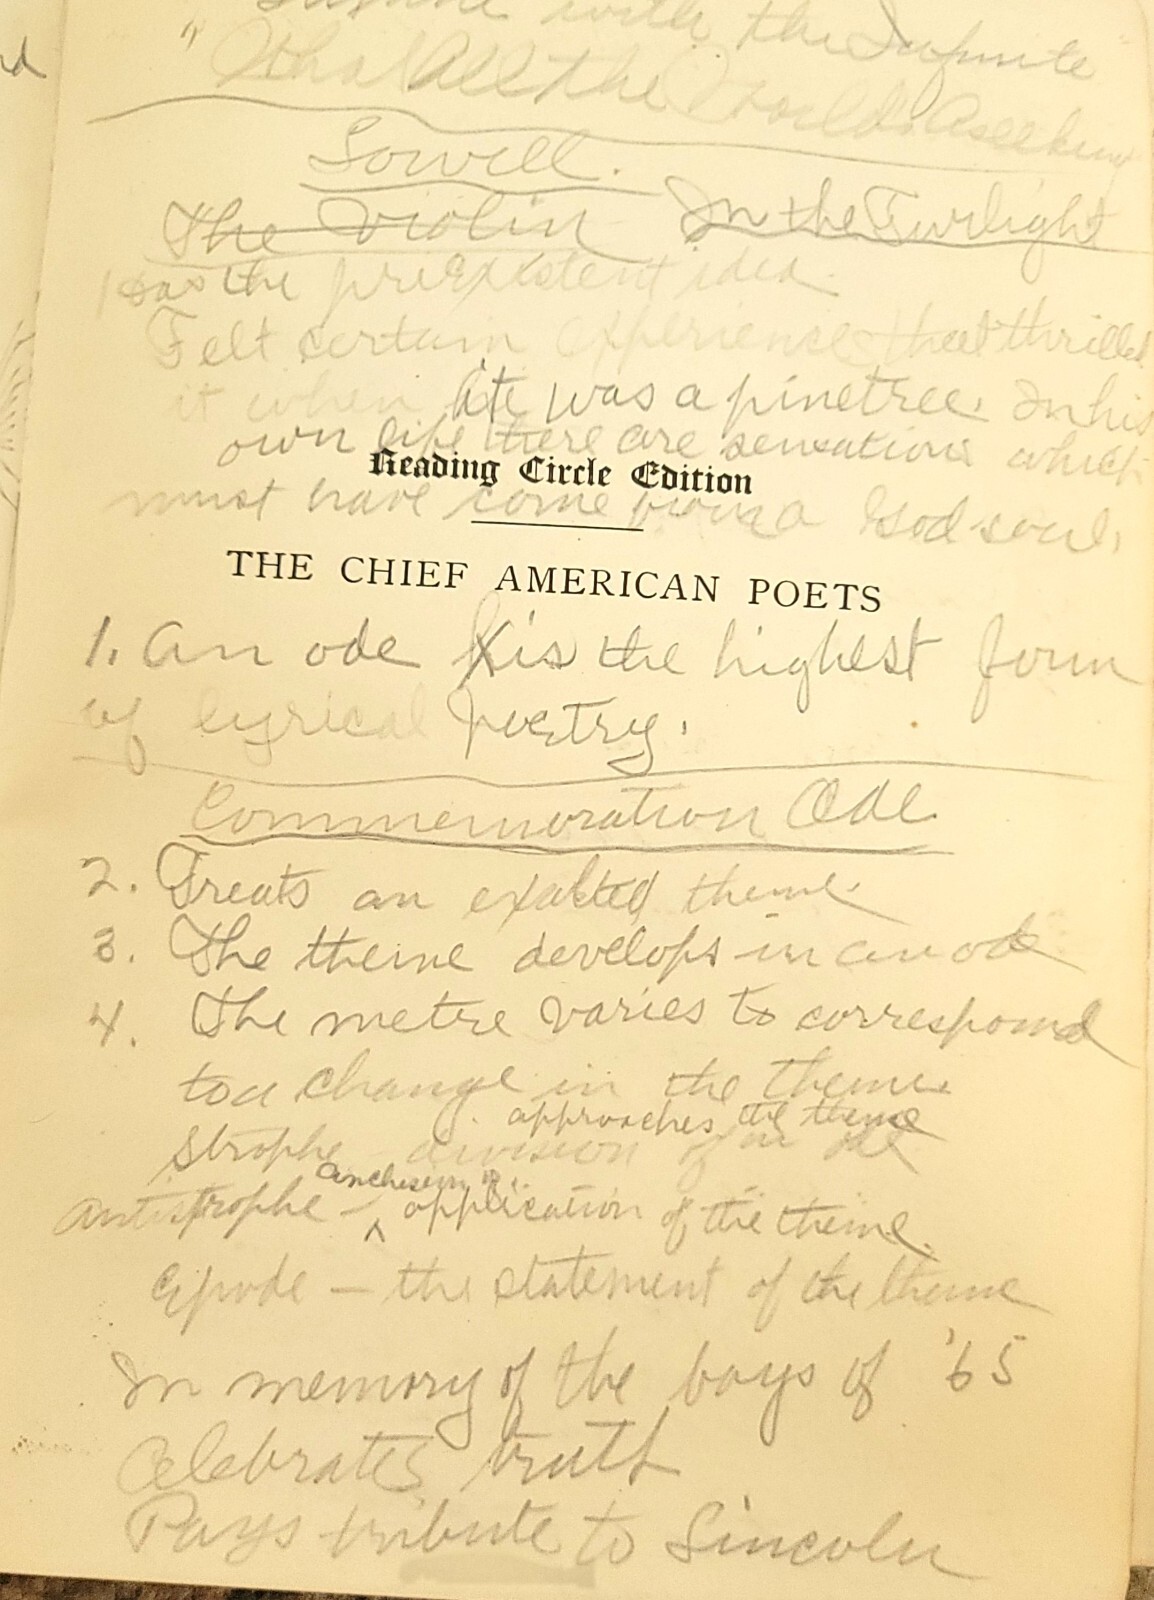 with the Infinite
"What All the World's a seeking"
Lowell.
The Violin In the Twilight
Has the preexistent idea.
Felt certain experiences that thrilled
it when it was a pinetree. In his
own life there are sensations which
Reading Circle Edition
must have come from a God-soul.
THE CHIEF AMERICAN POETS
1. An ode is the highest form
of lyrical poetry.
Commemoration Ode
2. Treats an exalted theme.
3. The theme develops in an ode
4. The metre varies to correspond
to a change in the theme.
approaches the theme
Strophe - division of an ode
Antistrophe - application of the theme.
Epode - the statement of the theme
In memory of the boys of '65
Celebrates truth
Pays tribute to Lincoln